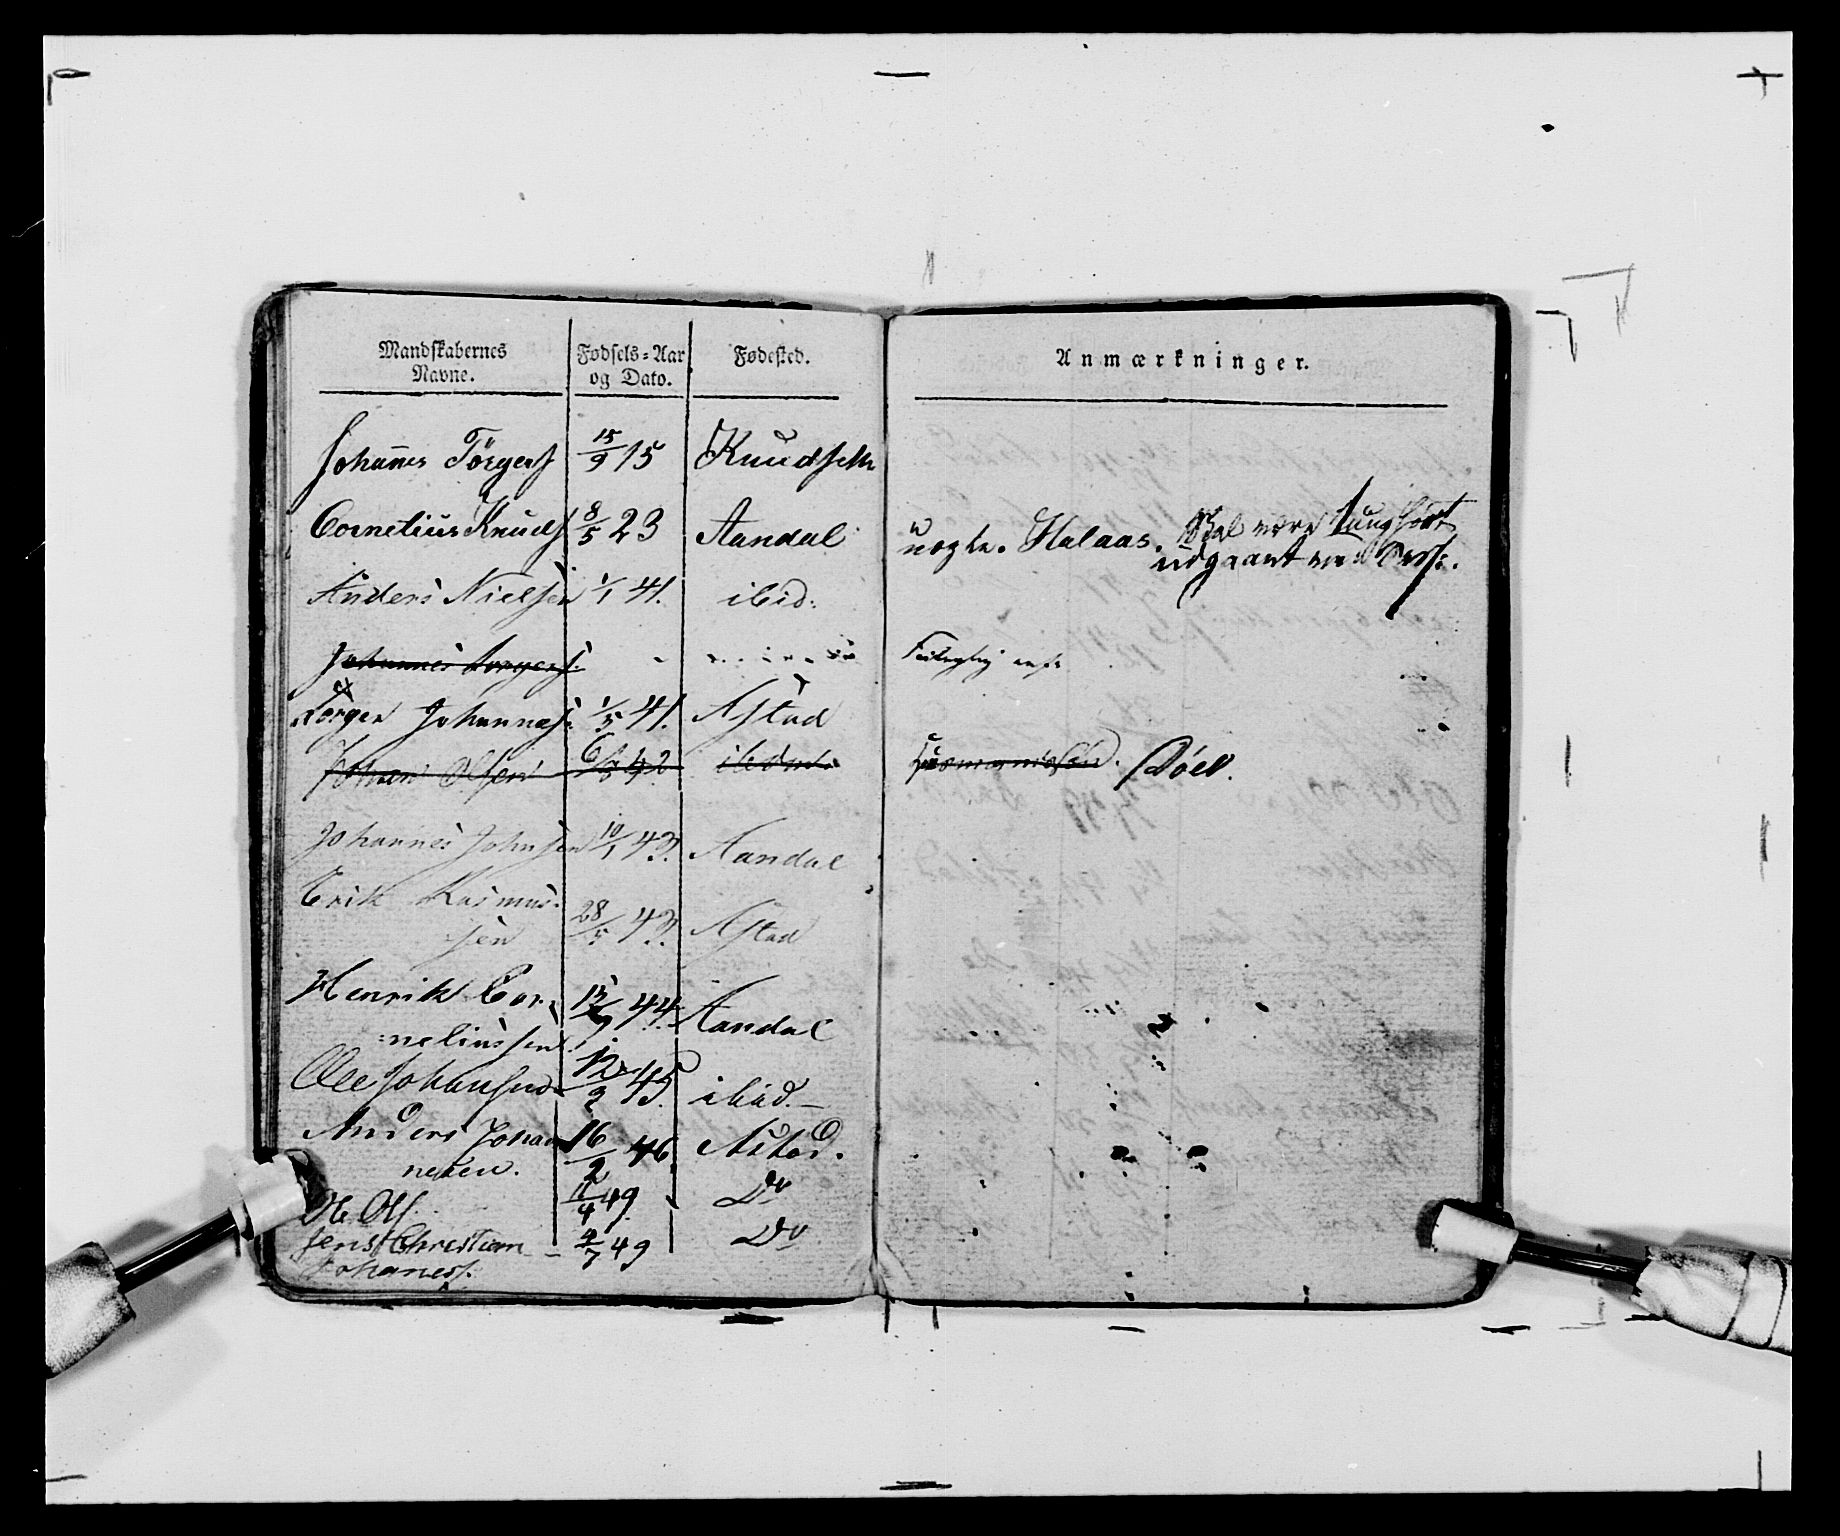 Mandskabernes Navne.	Fødsels-Aar og Dato.	Fødested.	Anmærkninger.
Johannes Törgers	15/9 15	Knudseth
Cornelius Knuds	8/5 23	Aandal	Halaas. Skal være tunghört
udgaaet
Anders Nielsen	1/1 41.	ibid:
Johannes Torgers.
Törger Johannes.	1/5 41.	Astad
Johan Olsen	42	Döed.
Johannes Johnsen	10/1 43.	Aandal
Erik Rasmus-
sen	28/5 43.	Astad
Henrik Cor-
neliussen	44	Aandal
Ole Johansen	12/2 45.	ibid. –
Anders Johan
nesen.	16/2 46	Astad.
Ole Ols	11/4 49	Do
Jens Christian – 4/7 49	Do
Johaness.